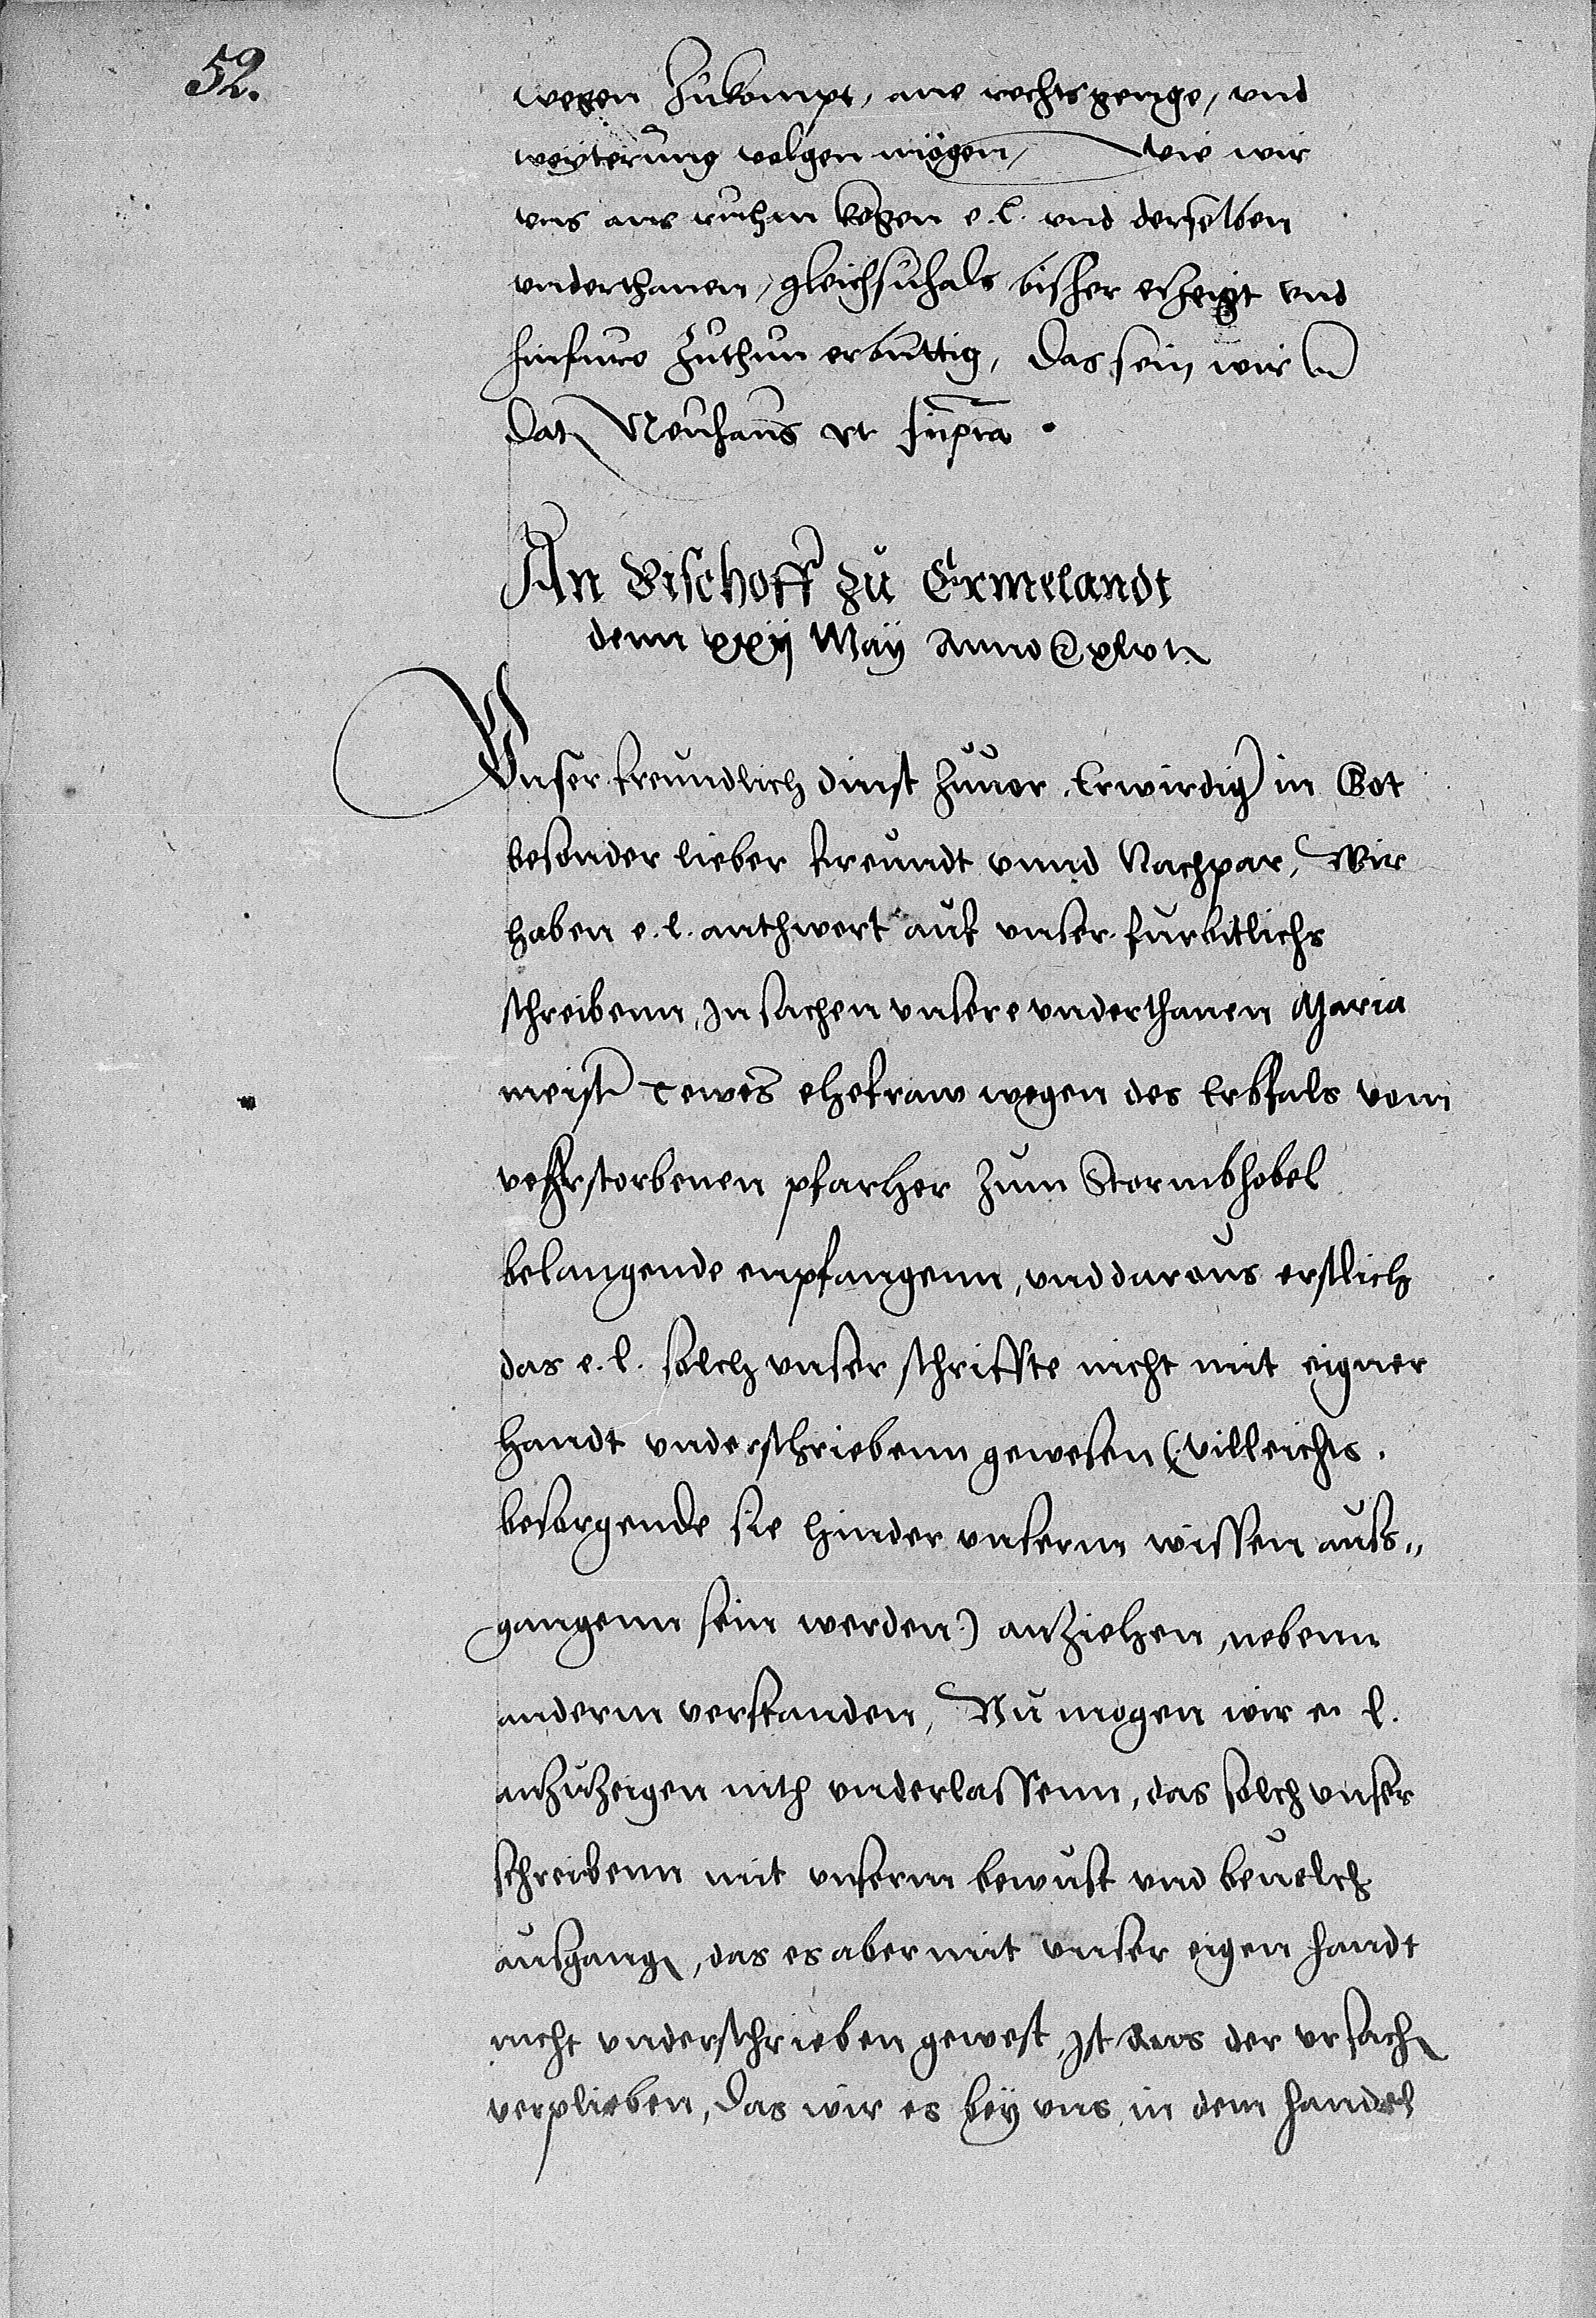 52.
wegen zukompt, ane rechtsgenge, vnd
weyterung volgen mögen, Wie wir
vns ane ruhm kegen e. l. vnd derselben
vnderthanen, gleichsuhals bisher erzeigt vnd
hinfuro zuthun erbuttig, Das sein wir
Dat Neuhaus vt supra.
An Bischoff zu Ermelandt
denn xxij May Anno xlvt
Vnser freundlich dinst zuuor. Erwirdig in Got
besonder lieber freundt vnnd Nachpar, Wir
haben e. l. anthwert auf vnser furbitlichs
schreibenn, In sachen vnsere vnderthanen Maria
meist Tewes ehefraw wegen des Erbfals vom
vehrstorbenen pfarher zum Stormbhobel
belangende enpfangenn, vnd daraus erstlich
das e. l. solch vnser schriffte nicht mit eigner
handt vnderschriebenn gewesen (villeichts.
besorgende sie hinder vnserm wissen aus„
gangenn sein werden) anziehen, nebenn
anderm verstanden, Nu mogen wir e. l.
anzuzeigen nith vnderlassenn, das solch vnser
schreibenn mit vnserm bewust vnd beuelch
ausgang, das es aber mit vnser eigen handt
nicht vnderschrieben gewest, Ist aus der vrsach
verplieben, Das wir es bey vns in dem handel